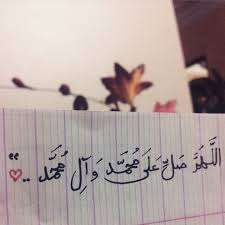 اللَّهُمَّ صَلِّ عَلَى مُحَمَّد وَآلِ مُحَمَّد .. "♡